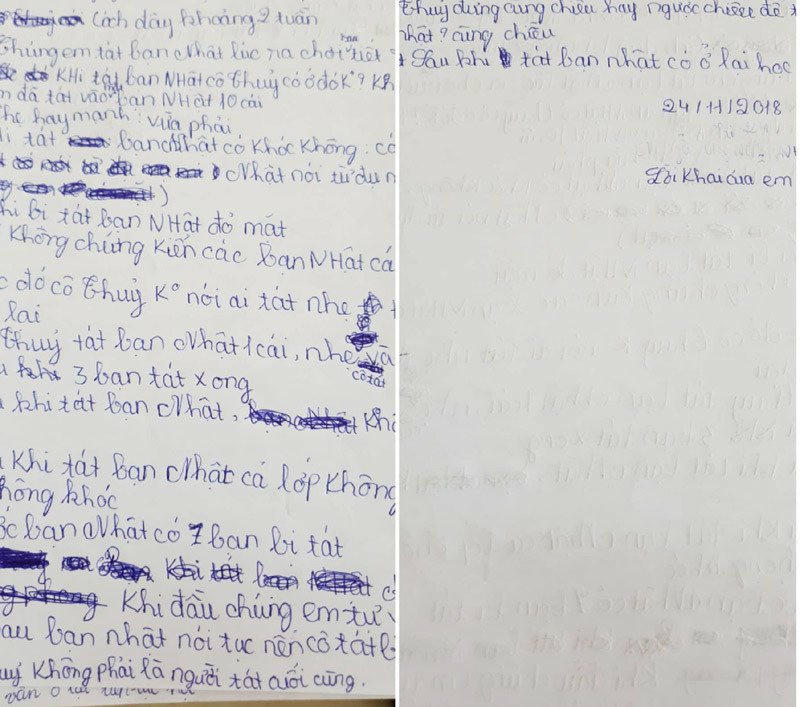 Cách đây khoảng 2 tuần
Chúng em tát bạn Nhật lúc ra chơi tiết
Khi tát bạn Nhật cô Thuỷ có ở đó K°?
đã tát vào bạn Nhật 10 cái
nhẹ hay mạnh: vừa phải
tát bạn Nhật có khóc không: có
Nhật nói từ
bị tát bạn Nhật đỏ mát
Không chứng kiến các bạn Nhật
đó cô Thuỷ K° nói ai tát nhẹ
lại
Thuỷ tát bạn Nhật 1 cái, nhẹ và
cô tát
3 bạn tát xong
khi tát bạn Nhật,
Khi tát bạn Nhật cả lớp không
không khóc
bạn Nhật có 7 bạn bị tát
Khi đầu chúng em tự
bạn nhật nói tục nên cô tát
không phải là người tát cuối cùng.
Thuỷ dùng cùng chiều hay ngược chiều để
nhật? cùng chiều
+ Sau khi tát bạn nhật có ở lại học
24/11/2018
Lời khai của em